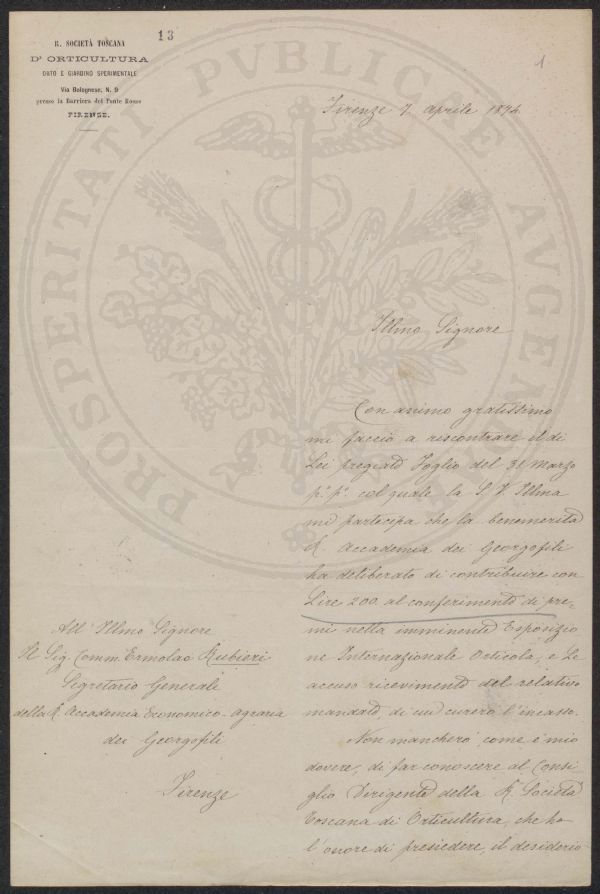 13
1
R. SOCIETÀ TOSCANA
D'ORTICULTURA
ORTO E GIARDINO SPERIMENTALE
Via Bolognese, N. 9
presso la Barriera del Ponte Rosso
FIRENZE.
Firenze 7 Aprile 1874
Illmo Signore
Con animo gratissimo
mi faccio a riscontrare il di
Lei pregiato Foglio del 31 Marzo
p.º p.º col quale la S. V. Illma
mi partecipa che la benemerita
R. Accademia dei Georgofili
ha deliberato di contribuire con
Lire 200. al conferimento di pre-
mi nella imminente Esposizio
ne Internazionale Orticola, e Le
accuso ricevimento del relativo
mandato, di cui curerò l'incasso.
Non mancherò come è mio
dovere, di far conoscere al Consi
glio Dirigente della R. Società
Toscana di Orticultura, che ho
l'onore di presiedere, il desiderio
All' Illmo Signore
Il Sig. Comm. Ermolao Rubieri
Segretario Generale
della R. Accademia Economico-agraria
dei Georgofili
Firenze
PROSPERITATI PVBLICAE AVGENDAE